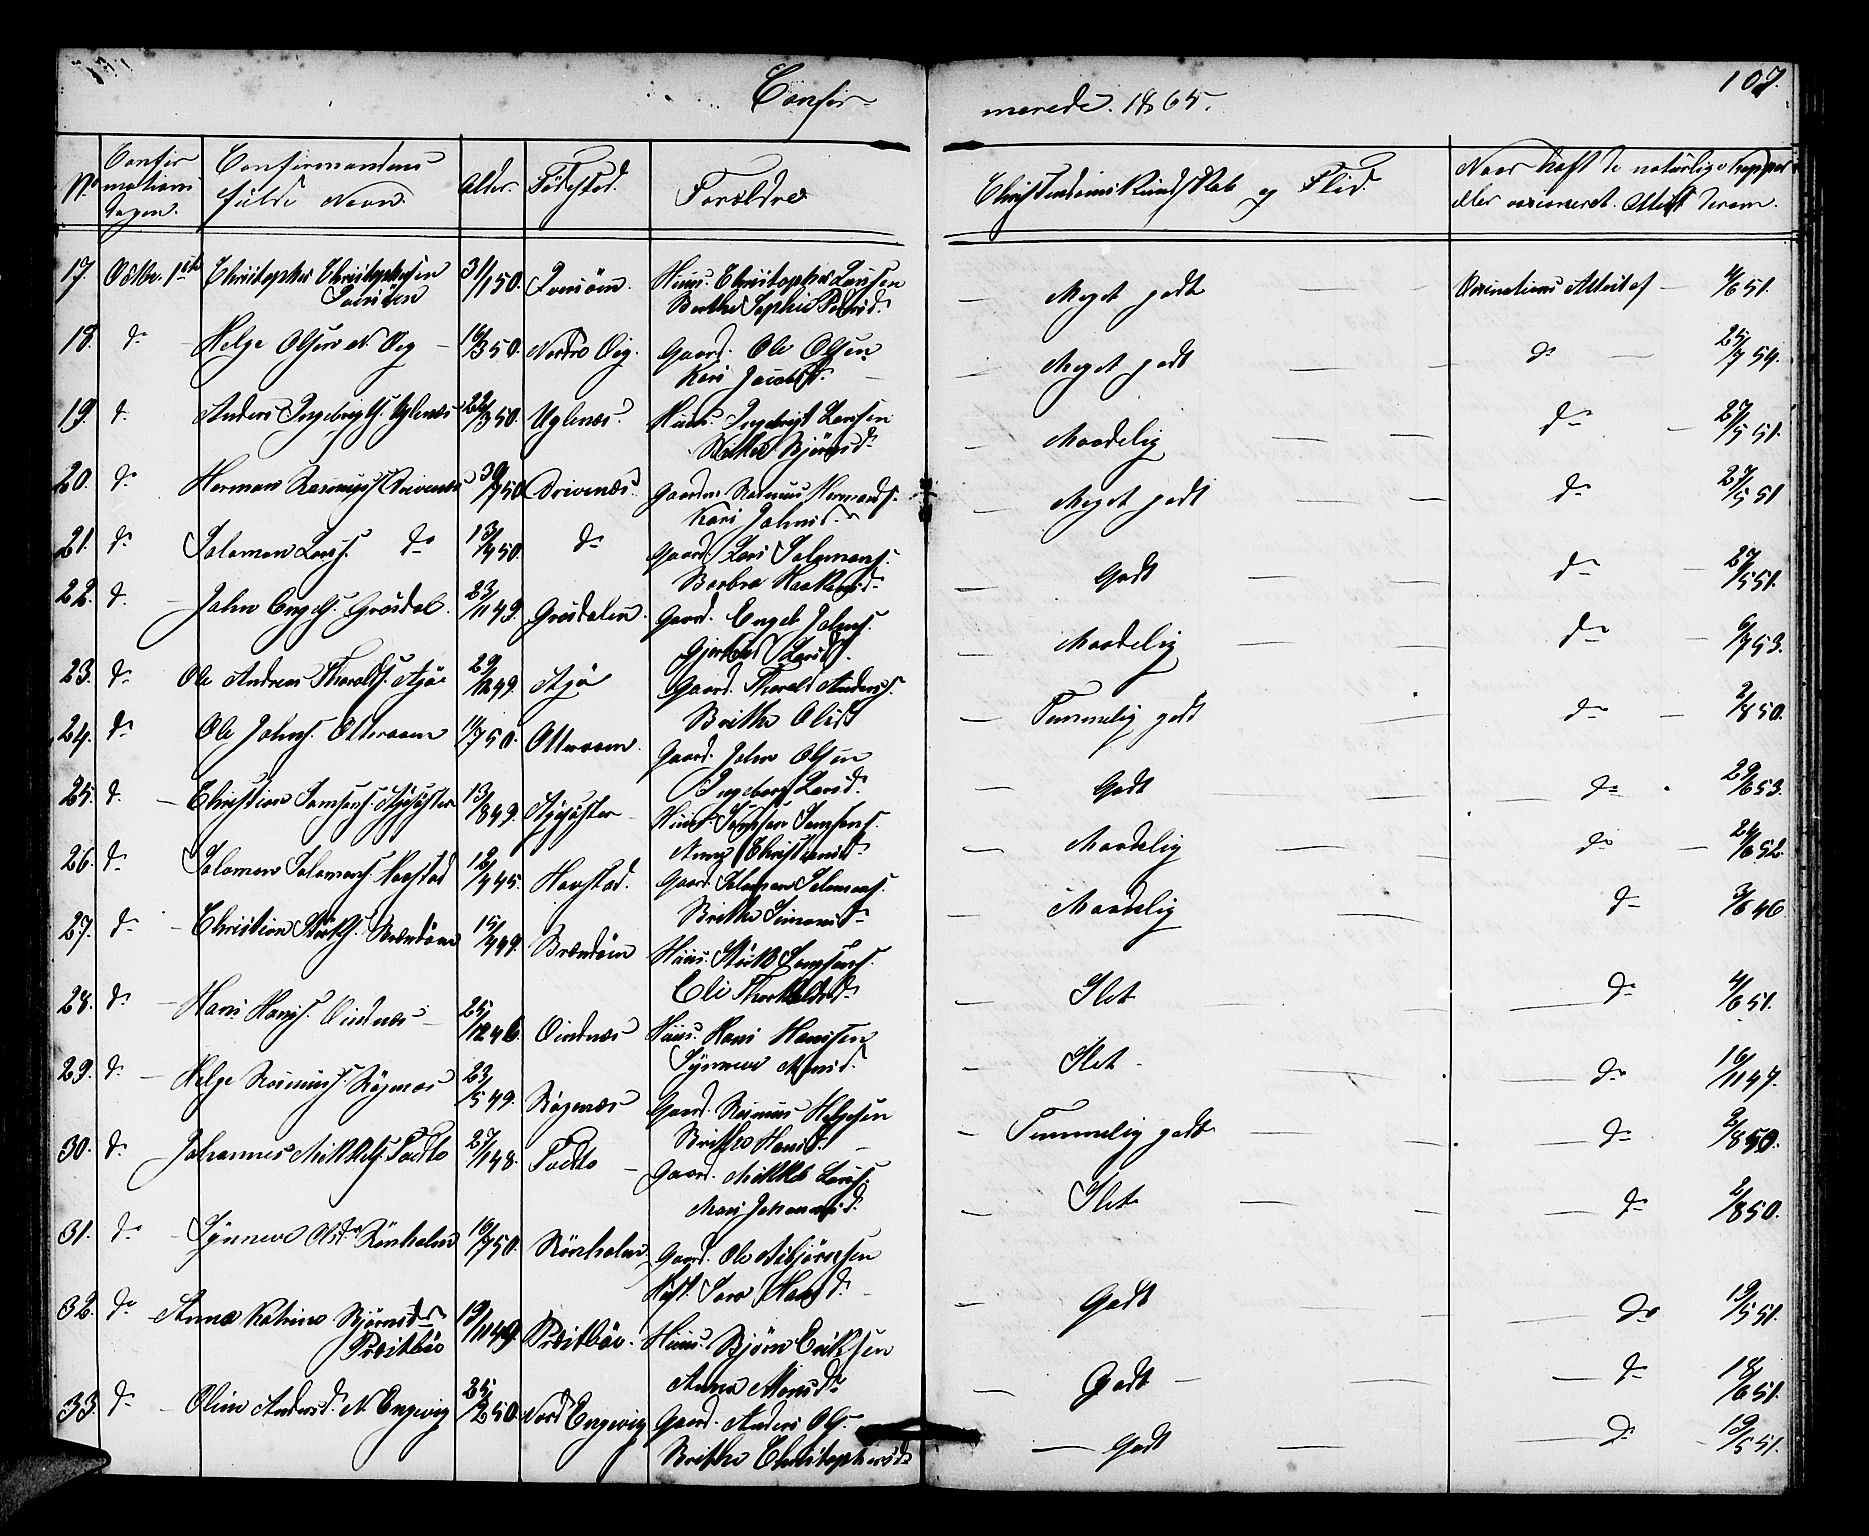 Confir-
merede. 1865.
107.
No
Confir
mations
dagen.
Confirmandens
fulde Navn.
Alder.
Fødested.
Forældre
Christendoms Kundskab og Flid.
Naar haft de naturlige Kopper
eller vaccineret. Attest derom.
17. Octbr. 1ste Christopher Christophersen 31/1 50. Huus. Christopher Larsen
Meget godt Vaccinations Attest af 4/6 51.
18. do Helge Olsen N. Øeg 18/3 50. Nordre Øeg. Gaard. Ole Olsen
Kari Jacobsd.
Meget godt do 25/7 54.
19. do Anders Ingebrigts. Uglenæs 22/3 50. Uglenæs. Huus. Ingebrigt Larsen
Brithe Bjørnsd.
Maadelig do 27/5 51.
20. do Herman Rasmuss. Drivenæs 30/7 50 Drivenæs. Gaardm. Rasmus Hermands.
Kari Johnsd.
Meget godt do 27/5 51
21. do Salomon Larss. do 13/9 50. do Gaard. Lars Salomons.
Barbra Haakensd.
Godt do 27/5 51.
22. do John Engels. Grøsdal. 23/11 49. Grøsdalen. Gaard. Engel Johns.
Gjertrud Larsd.
Maadelig do 6/7 53.
23. do Ole Andreas Thoralds. 29/12 49. Gaard. Thorald Anders.
Brithe Olsd.
Temmelig godt do 2/8 50.
24. do Ole Johns. Otteraaen 11/7 50. Otteraaen. Gaard. John Olsen
Ingeborg Larsd.
Godt do 29/6 53.
25. do Christian Samsons. 13/8 49. Huus. Samson Samsons.
Anna Christiansd.
Maadelig do 24/6 52
26. do Salomon Salomons. Havstad 12/4 45. Havstad. Gaard. Salomon Salomons.
Brithe Simonsd.
Maadelig do 3/6 46
27. do Christian 15/4 49. Huus. Samsons.
Eli Thorkildsd.
Slet do 4/6 51.
28. do Hans Hanss. Vindnæs 25/12 46. Vindnæs Huus. Hans Hanssen
Synneve Monsd.
Slet do 16/11 47.
29. do Helge Rasmuss. Røgenæs 23/5 49. Røgenæs Gaard. Rasmus Helgesen
Brithe Hansd.
Temmelig godt do 2/8 50.
30. do Johannes Mikkels. Tvedto 27/1 48. Tvedto Gaard. Mikkel Larss.
Mari Johannesd.
Slet do 2/8 50.
31. do Synneve Olsdr. Rønholm 10/7 50. Rønholm. Gaard. Ole Asbjørnsen
Hansd.
Godt do 19/5 51.
32. do Anna Katrine Bjørnsd. 19/11 49. Præstbøe. Huus. Bjørn Eriksen
Præstbøe
Anna Monsd.
Godt do 18/6 51.
33. do Oline Andersd. N. Engevig 25/2 50. Nord Engevig Gaard. Anders Ols.
Brithe Christophersd.
Godt do 19/5 51.